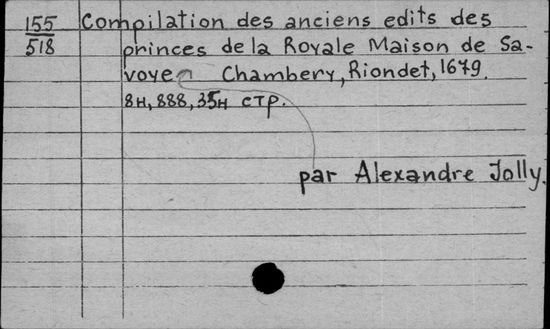 155 Compilation des anciens edits des
518 princes de la Royale Maison de Sa-
voye Chambery, Riondet, 1679.
8н, 888, 35н стр.
par Alexandre Jolly.